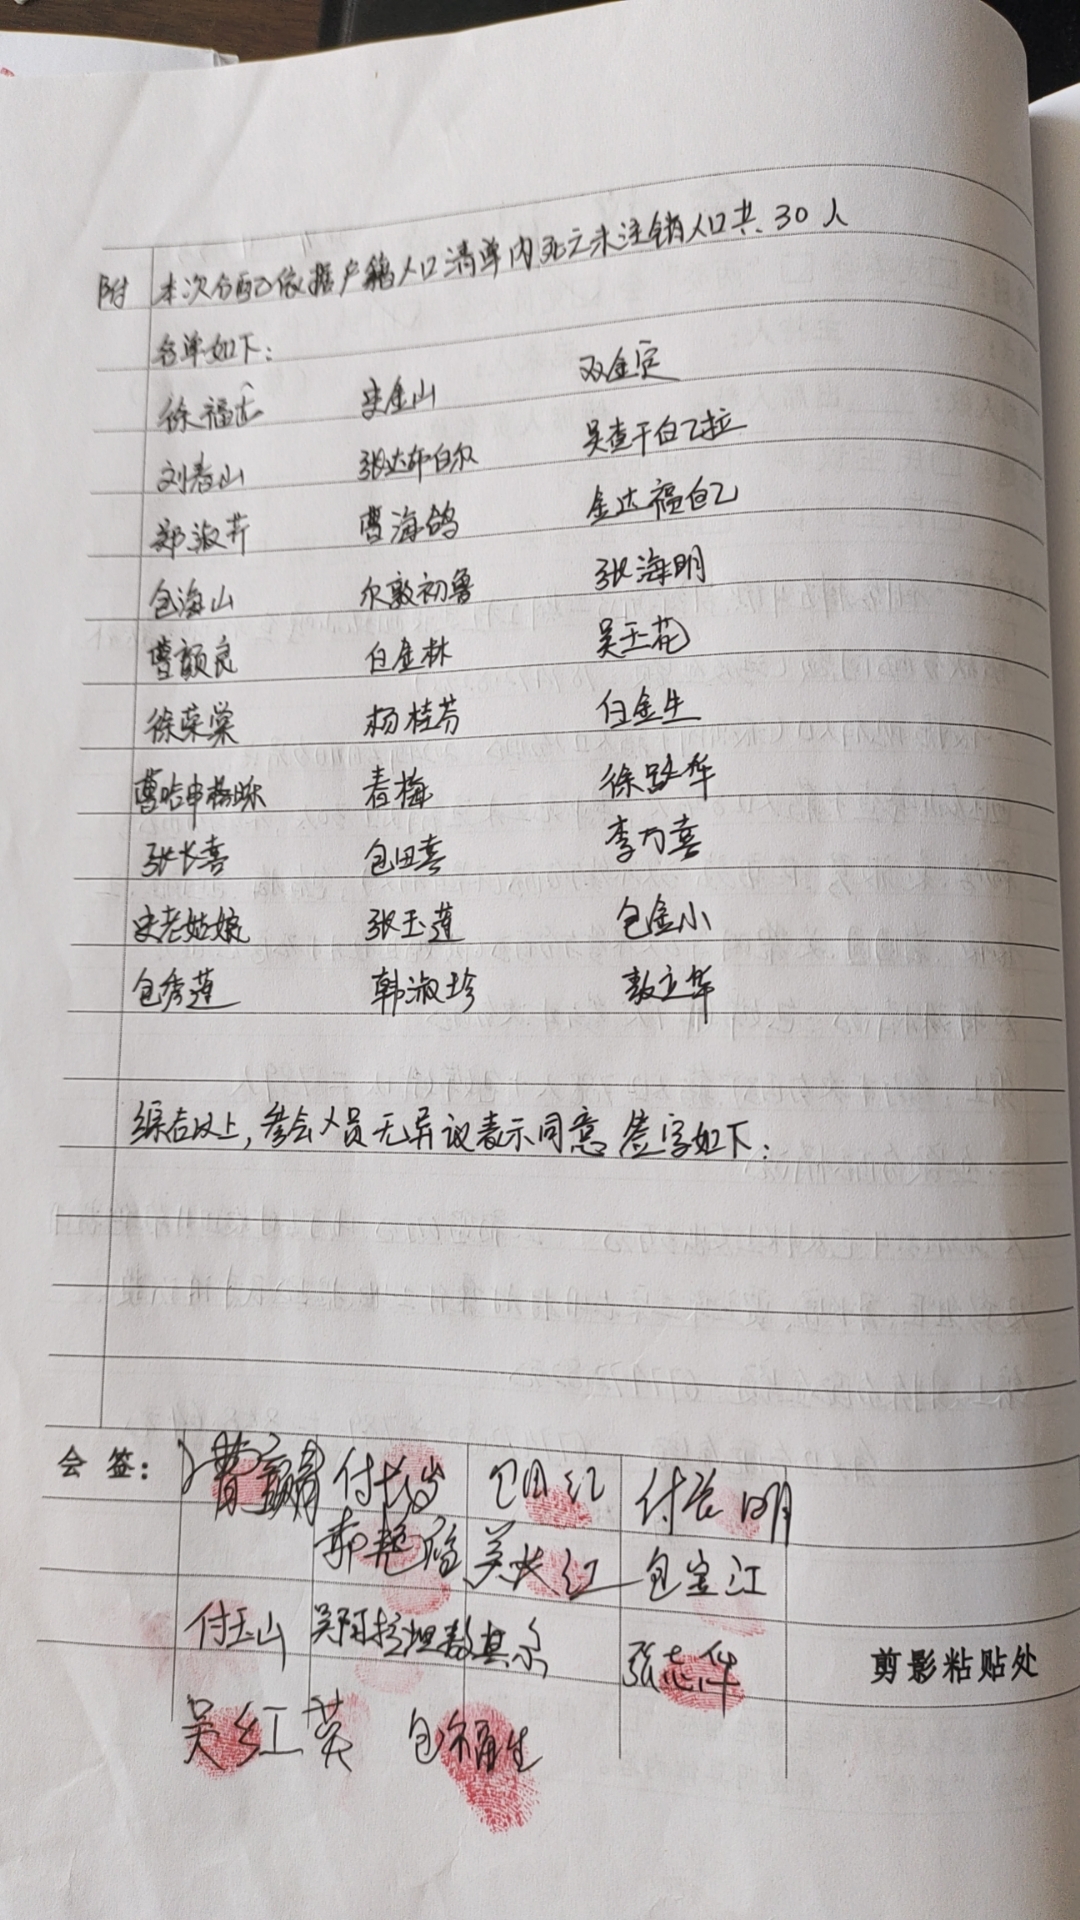 附 本次分配依据户籍人口清单内死亡未注销人口共30人
名单如下：
徐福 史金山 双金定
刘春山 张达布白尔 吴查干白乙拉
郑淑芹 曹海鸽 金达福白乙
包海山 尔敦初鲁 张海明
曹额良 白金林 吴玉花
徐荣棠 杨桂芬 白金生
曹哈申 春梅 徐 华
张长喜 包田喜 李万喜
史老姑娘 张玉莲 包金小
包秀莲 韩淑珍 敖立华
综合以上，参会人员无异议表示同意 签字如下：
会签：
曹 付长 包田红 付长明
郭艳 吴长红 包宝江
付玉山 吴阿拉坦敖其尔 张志伟 剪影粘贴处
吴红英 包福生